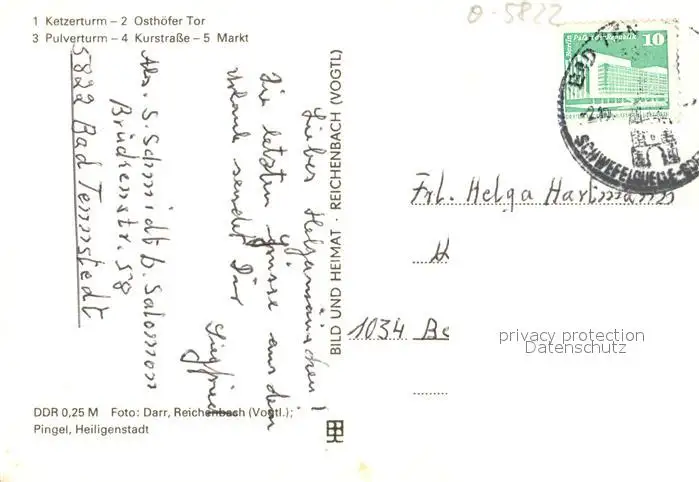 1 Ketzerturm – 2 Osthöfer Tor
3 Pulverturm – 4 Kurstraße – 5 Markt
0-5822
Berlin Palast der Republik 10
DDR
BAD TEN
-2.10
SCHWEFELQUELLE-
Liebes Helgamäuschen!
Die letzten Grüsse aus dem
Urlaub sendet Dir
Siegfried
Abs. S. Schmidt b. Salomon
Brückenstr. 58
5822 Bad Tennstedt
BILD UND HEIMAT · REICHENBACH (VOGTL)
Frl. Helga Hartmann
1034 Be
privacy protection
Datenschutz
DDR 0,25 M Foto: Darr, Reichenbach (Vogtl.);
Pingel, Heiligenstadt